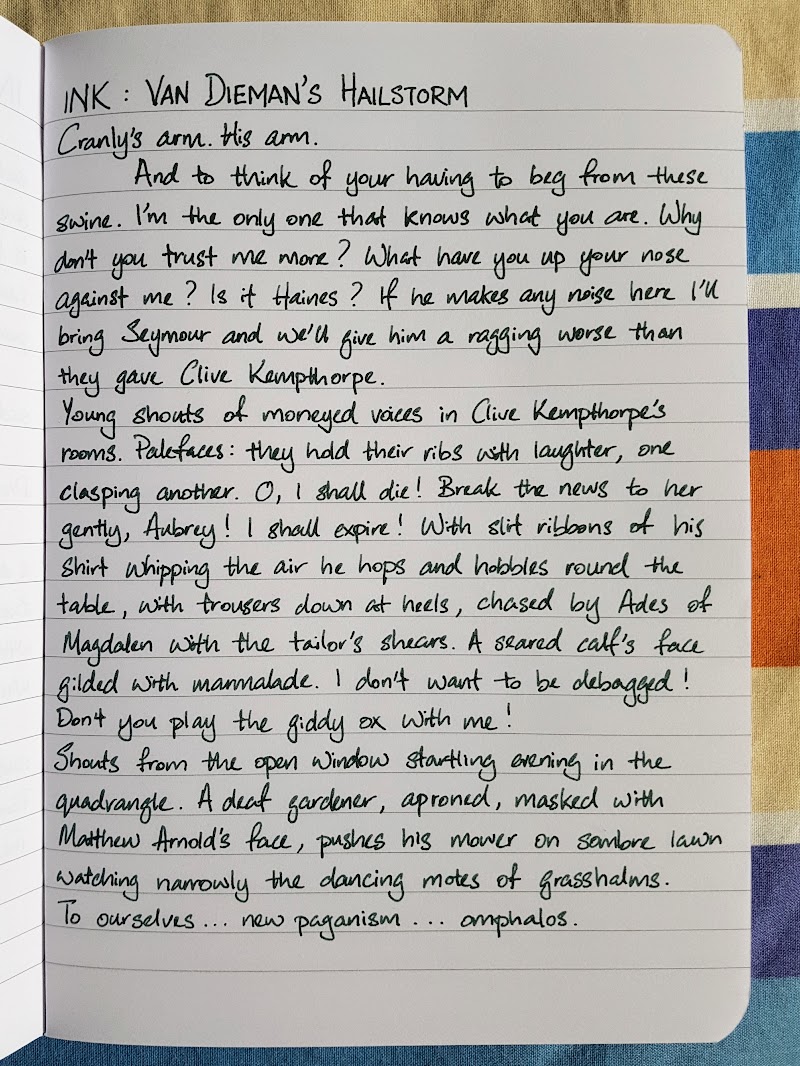 INK : VAN DIEMAN'S HAILSTORM
Cranly's arm. His arm.
And to think of your having to beg from these
swine. I'm the only one that knows what you are. Why
don't you trust me more? What have you up your nose
against me? Is it Haines? If he makes any noise here I'll
bring Seymour and we'll give him a ragging worse than
they gave Clive Kempthorpe.
Young shouts of moneyed voices in Clive Kempthorpe's
rooms. Palefaces: they hold their ribs with laughter, one
clasping another. O, I shall die! Break the news to her
gently, Aubrey! I shall expire! With slit ribbons of his
shirt whipping the air he hops and hobbles round the
table, with trousers down at heels, chased by Ades of
Magdalen with the tailor's shears. A scared calf's face
gilded with marmalade. I don't want to be debagged!
Don't you play the giddy ox with me!
Shouts from the open window startling evening in the
quadrangle. A deaf gardener, aproned, masked with
Matthew Arnold's face, pushes his mower on sombre lawn
watching narrowly the dancing motes of grasshalms.
To ourselves ... new paganism ... omphalos.